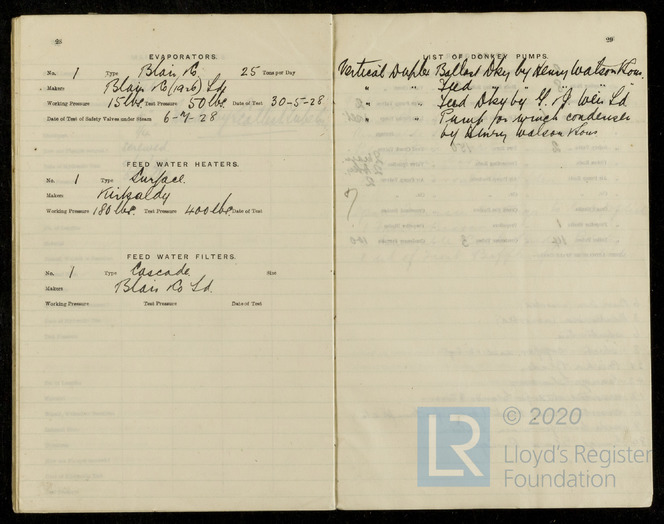 28
EVAPORATORS.
No. 1 Type Blair Co 25 Tons per Day
Makers Blair Co (1926) Ld
Working Pressure 15 lbs. Test Pressure 50 lbs Date of Test 30-5-28
Date of Test of Safety Valves under Steam 6-7-28
FEED WATER HEATERS.
No. 1 Type Surface.
Makers Kirkaldy
Working Pressure 180 lbs. Test Pressure 400 lbs. Date of Test
FEED WATER FILTERS.
No. 1 Type Cascade. Size
Makers Blair Co Ld.
Working Pressure Test Pressure Date of Test
29
LIST OF DONKEY PUMPS.
Vertical Duplex Ballast Dky by Henry Watson & Sons.
" " Feed "
" " Feed Dky by G. & J. Weir Ld
" " Pump for winch condenser
by Henry Watson & Sons
© 2020
LR Lloyd's Register
Foundation